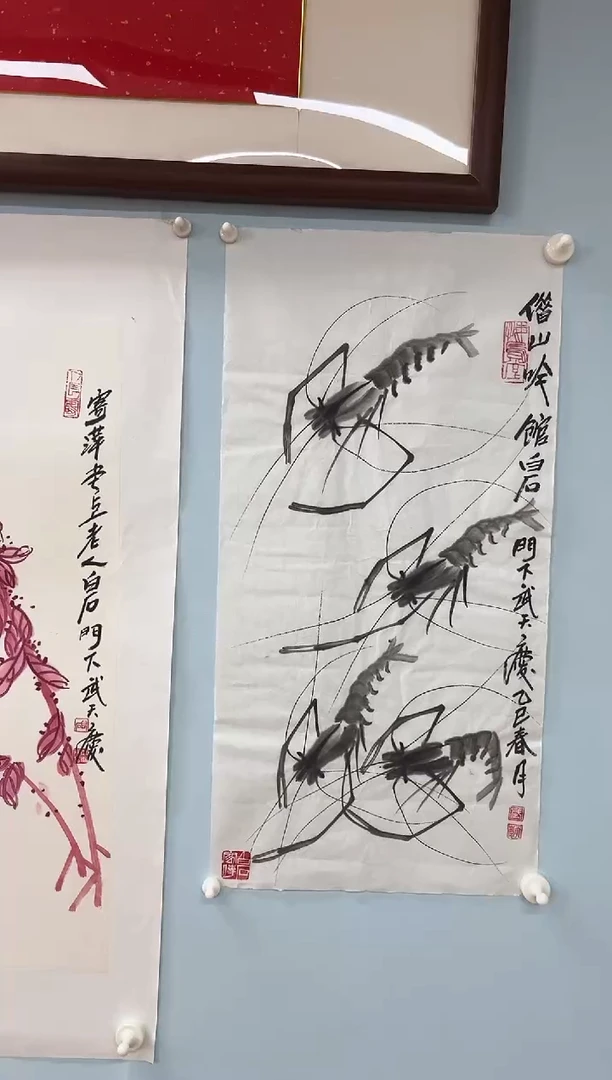 借山吟馆白石
門下武天慶乙巳春月
寄萍堂上老人白石門下武天慶